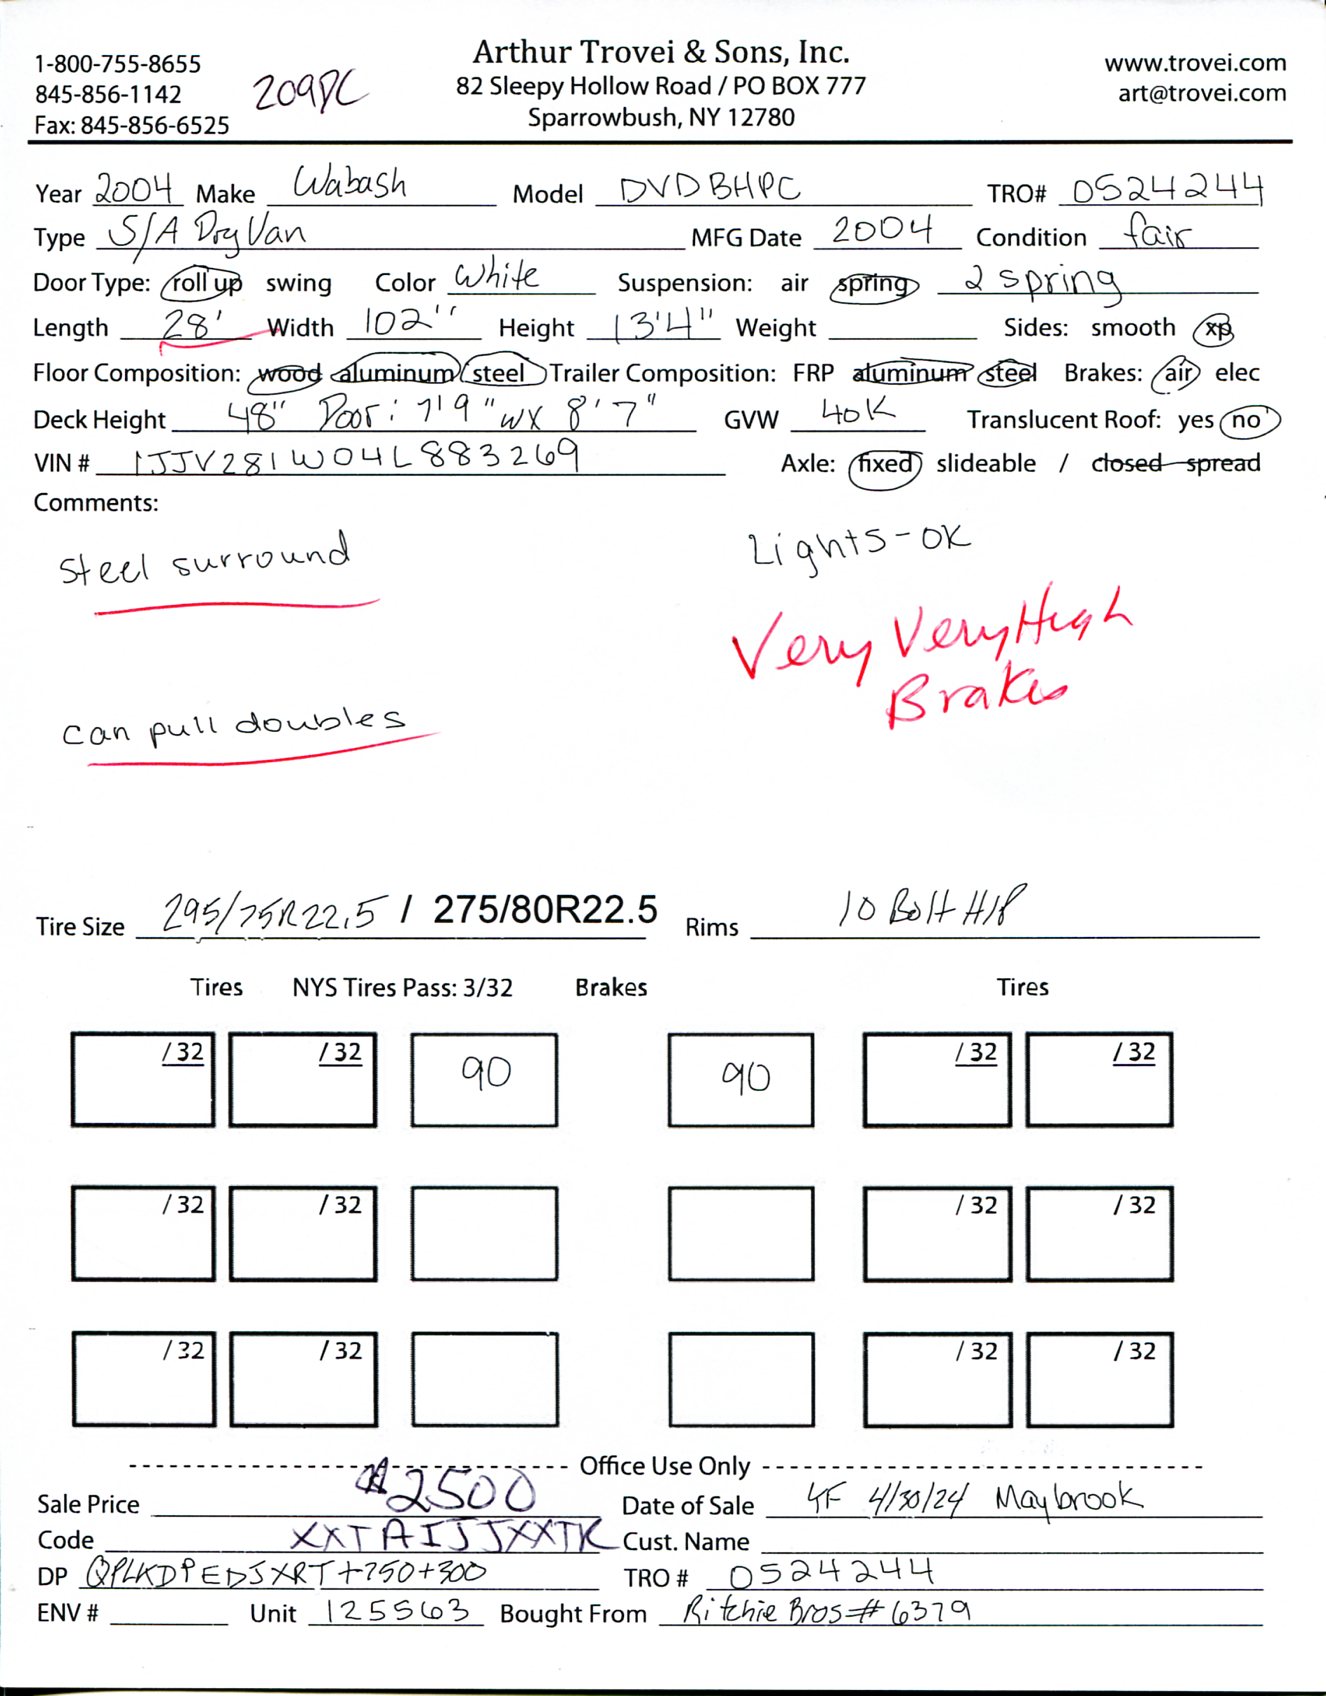 Arthur Trovei & Sons, Inc.
1-800-755-8655 82 Sleepy Hollow Road / PO BOX 777 www.trovei.com
845-856-1142 209DC Sparrowbush, NY 12780 art@trovei.com
Fax: 845-856-6525
Year 2004 Make Wabash Model DVDBHPC TRO# 0524244
Type S/A Dry Van MFG Date 2004 Condition fair
Door Type: roll up swing Color White Suspension: air spring 2 spring
Length 28' Width 102'' Height 13'4" Weight Sides: smooth xp
Floor Composition: wood aluminum steel Trailer Composition: FRP aluminum steel Brakes: air elec
Deck Height 48" Door: 7'9" wx 8'7" GVW 40K Translucent Roof: yes no
VIN # 1JJV281W04L883269 Axle: fixed slideable / closed spread
Comments:
Steel surround Lights-OK
Very Very High
Brakes
can pull doubles
Tire Size 295/75R22.5 / 275/80R22.5 Rims 10 Bolt H/P
Tires NYS Tires Pass: 3/32 Brakes Tires
/32 /32 90 90 /32 /32
/32 /32 /32 /32
/32 /32 /32 /32
Office Use Only
Sale Price $2500 Date of Sale 4/30/24 Maybrook
Code XXTAIJJXXTK Cust. Name
DP QPLKDPEDJXRT+750+300 TRO # 0524244
ENV # Unit 125563 Bought From Ritchie Bros # 6379